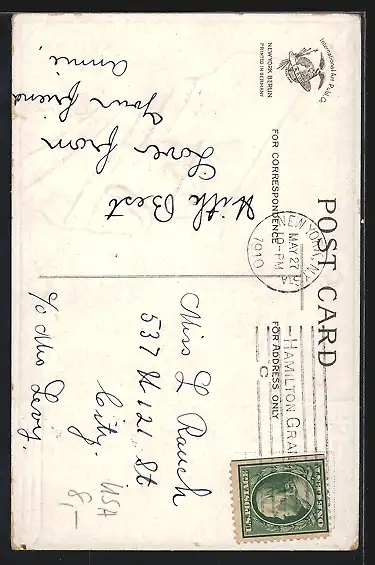 POST CARD
International Art Publ. Co.
NEW YORK BERLIN
PRINTED IN GERMANY
FOR CORRESPONDENCE
FOR ADDRESS ONLY
NEW YORK, N.Y.
MAY 27
10-PM
1910
HAMILTON GRA
With Best
Love from
Your friend
Annie.
Miss L Rauch
537 W 121 St
City.
c/o Mrs Levy.
USA
8,-